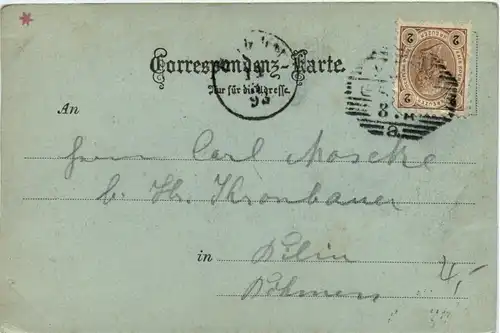 Correspondenz-Karte.
Nur für die Adresse.
2
2
8.
a
93
An
Herrn Carl Moscke
b. Hr. Kronbauer
in Bilin
Böhmen
4,-